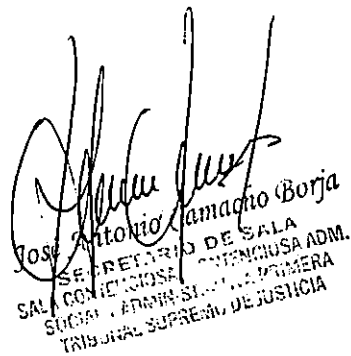 José Antonio Camacho Borja
SECRETARIO DE SALA
SALA CONTENCIOSA CONTENCIOSA ADM.
SOCIAL ADMINIS. PRIMERA
TRIBUNAL SUPREMO DE JUSTICIA